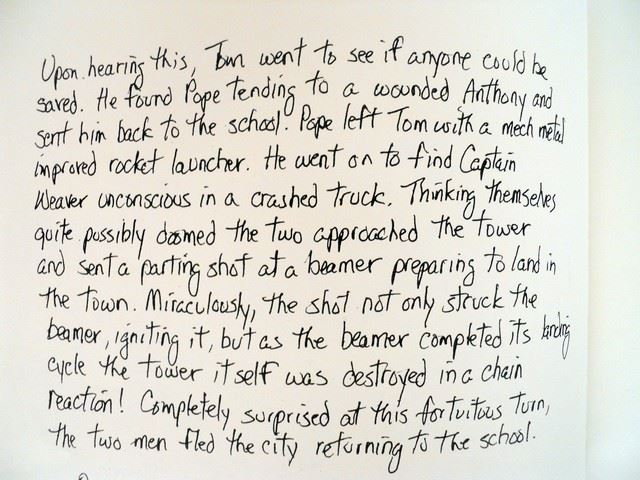 Upon hearing this, Tom went to see if anyone could be
saved. He found Pope tending to a wounded Anthony and
sent him back to the school. Pope left Tom with a mech metal
improved rocket launcher. He went on to find Captain
Weaver unconscious in a crashed truck. Thinking themselves
quite possibly doomed the two approached the tower
and sent a parting shot at a beamer preparing to land in
the town. Miraculously, the shot not only struck the
beamer, igniting it, but as the beamer completed its landing
cycle the tower itself was destroyed in a chain
reaction! Completely surprised at this fortuitous turn,
the two men fled the city returning to the school.